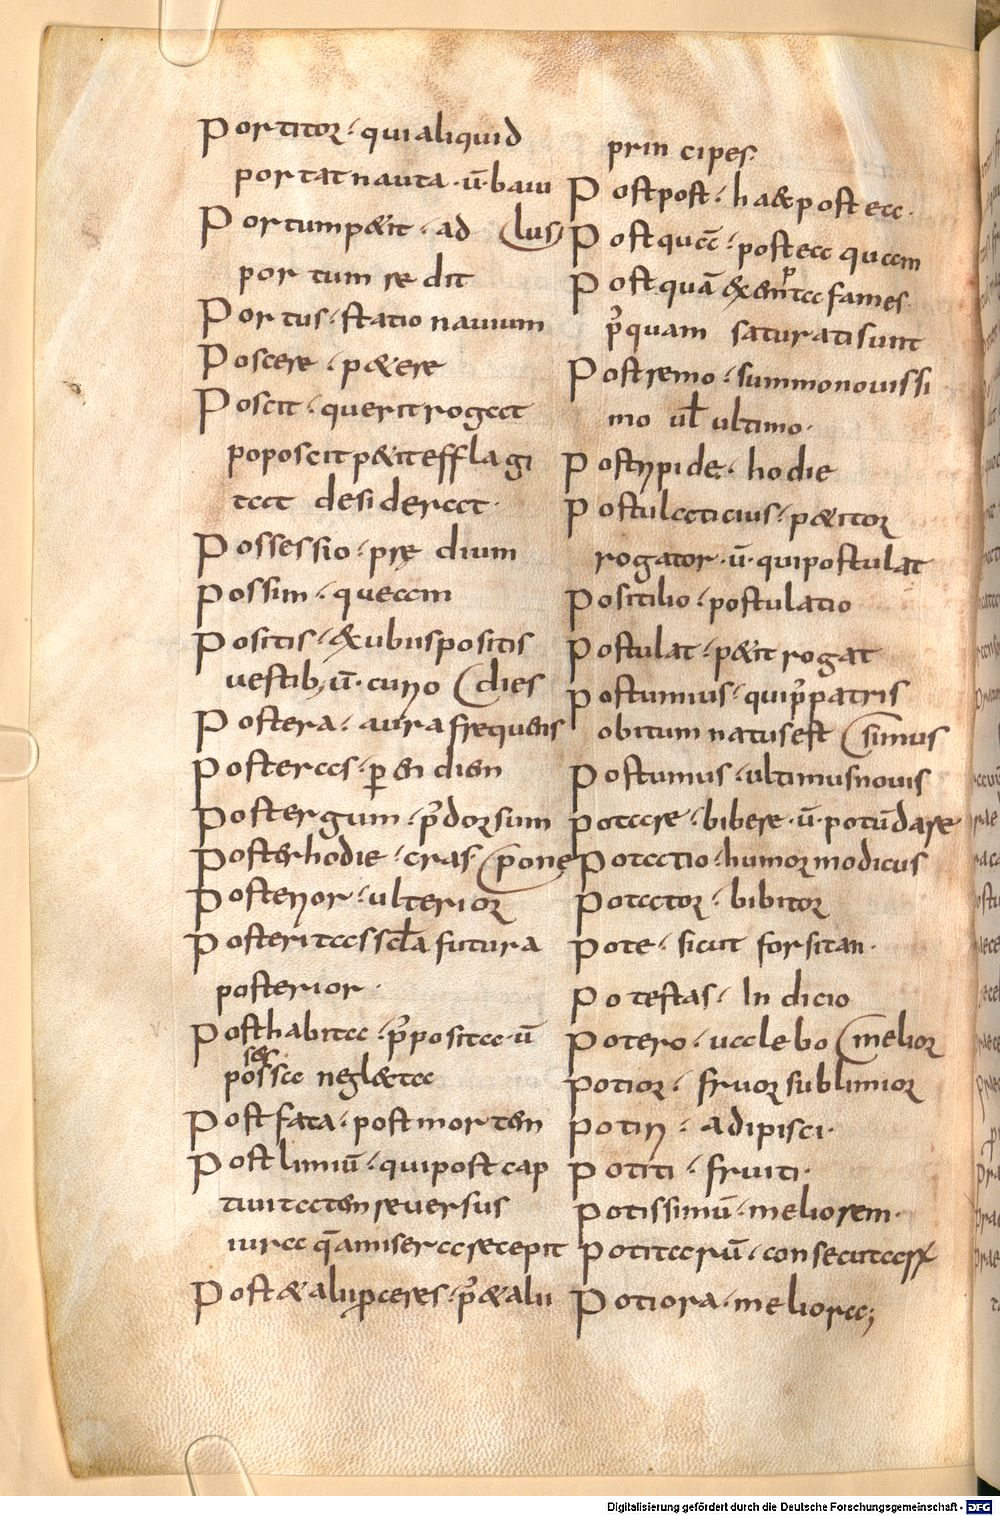 Portitor· qui aliquid
portat nauta·ū·baiu
Portum p&it· ad (lus)
portum redit
Portus· statio nauium
Poscere· p&ere
Poscit· querit rogat
poposcit p&it effla gi
tat desiderat·
Possessio· prędium
Possim· queam
Positis· & ubi is positis
uestib; ū· curyo (dies
Postera· aura frequens
Posteras· p̱ en dien
Postergum· p̄ dorsum
Poster hodie· cras· (pone
Posterior· ulterior
Posteritas sc̄la futura
posterior·
Posthabita· p̄posita·ū
possa negl&ta
ser
Post fata· post mortem
Post limiū· qui post cap
tiuitatem reuersus
iura q̄ amiserat recepit
Post & alii p̱ceres· p̄ & alii
principes·
Postpost· ha& post ea·
Post queā· postea quam
Post quā & emp̱ta fames·
p̄quam saturati sunt
Postremo· summo nouissi
mo ul̄ ultimo·
Postrypide· hodie
Postulaticius· p&itor
rogator·ū· qui postulat
Positilio· postulatio
Postulat· p&it rogat
Postumius· qui p̄ patris
obitum natus est (simus
Postumus· ultimus nouis
Potare· bibere·ū· potū dare
Potatio· humor modicus
Potator· bibitor
Pote· sicut forsitan·
Potestas· In dicio
Potero· ualebo (melior
Potior· fruor sublimior
Potiri· adipisci·
Potiti· fruiti·
Potissimū· meliorem·
Potitarū· consecutarū
Potiora· meliora;
Digitalisierung gefördert durch die Deutsche Forschungsgemeinschaft - DFG